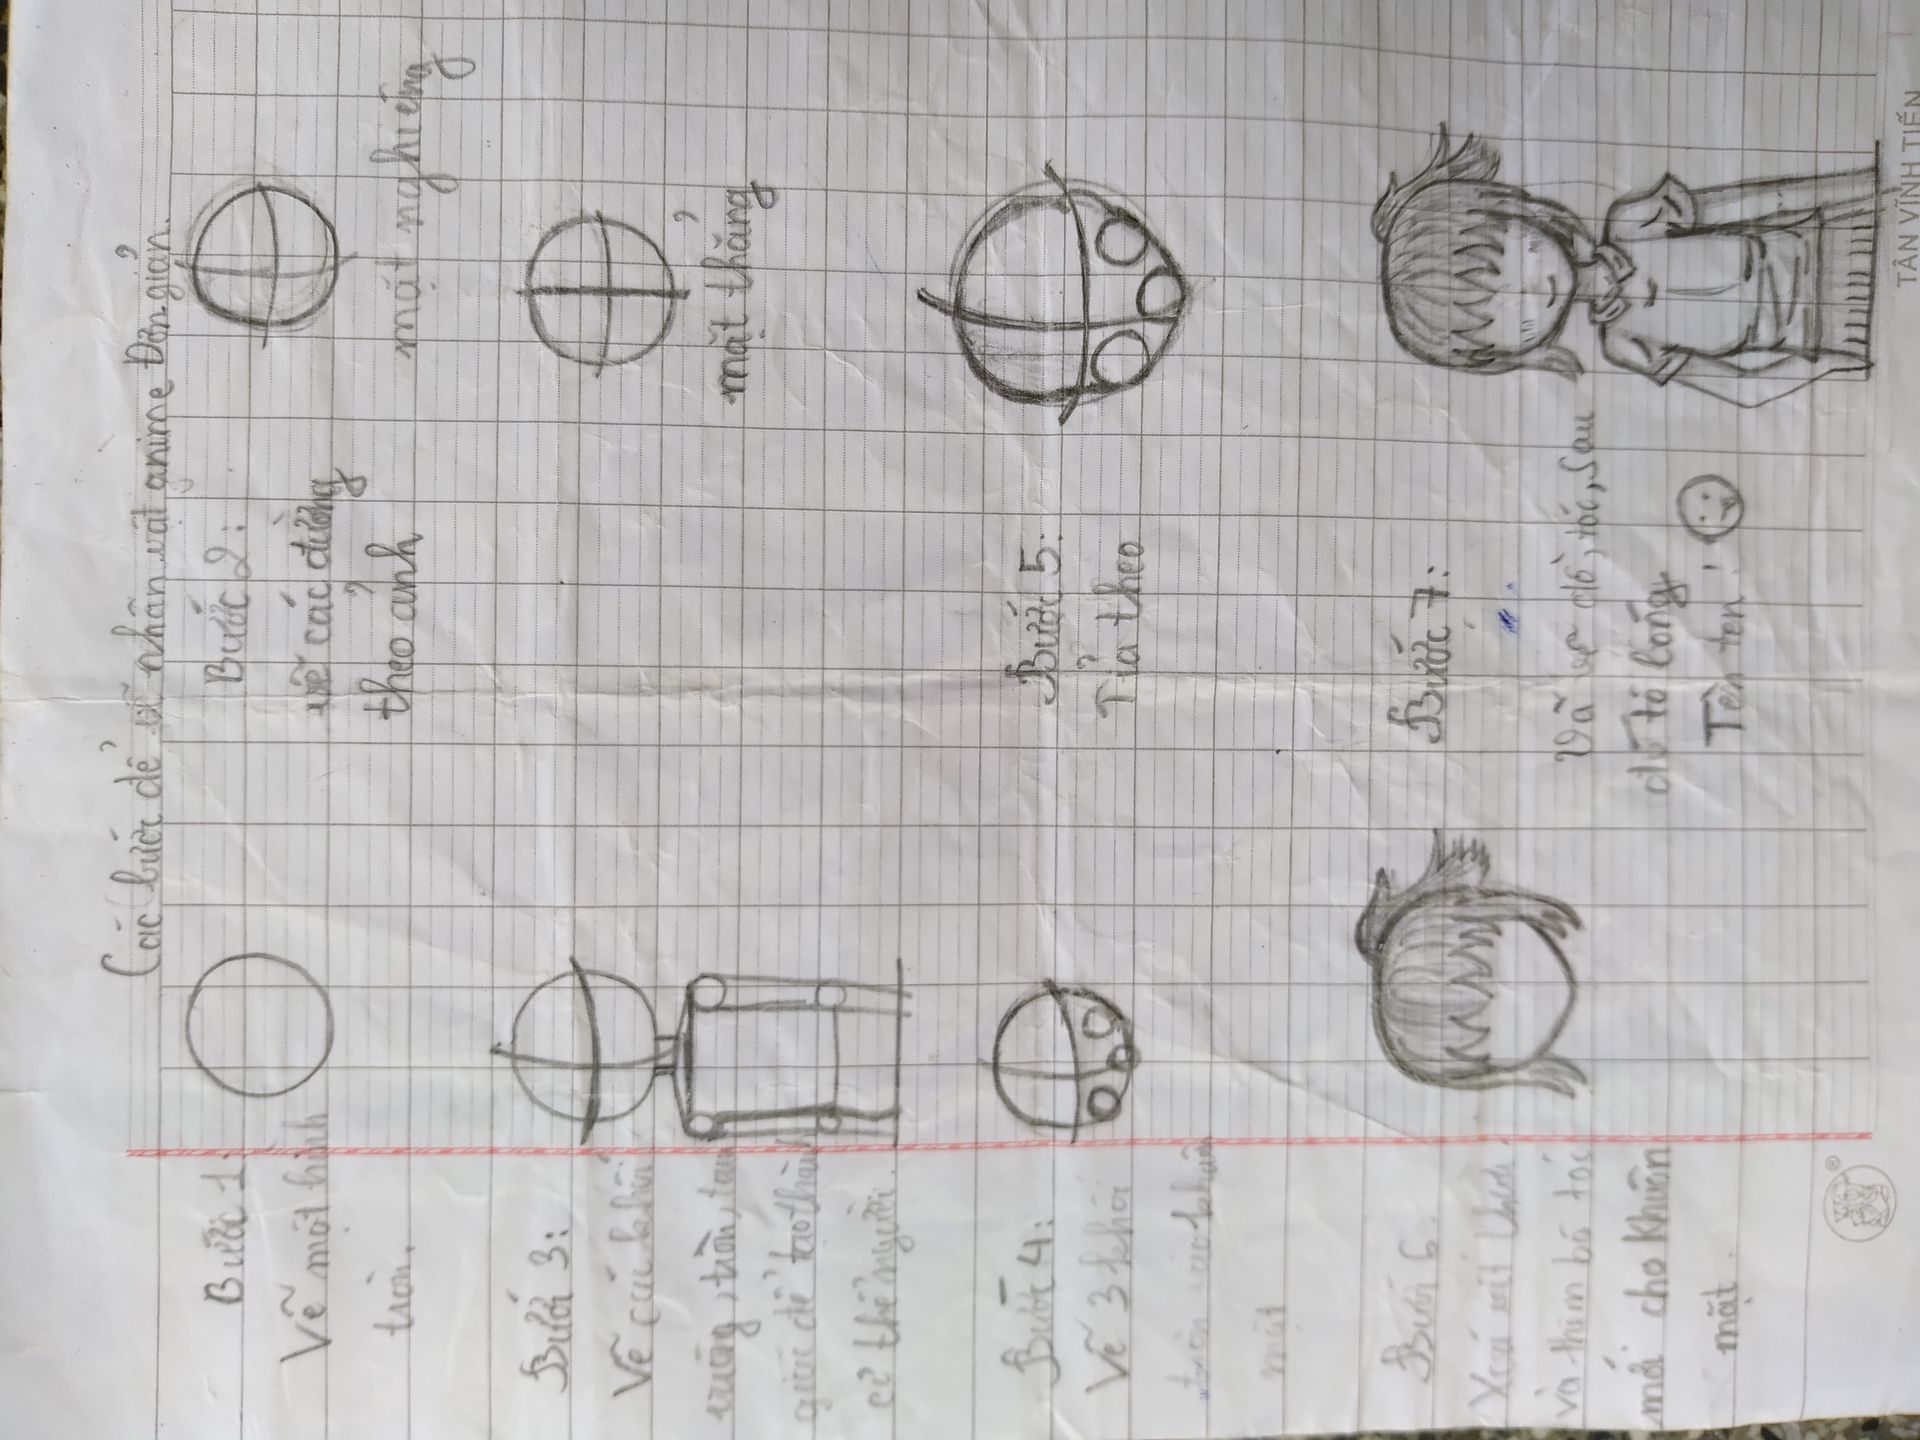 Các bước để vẽ nhân vật anime Đơn giản.
Bước 1:
Vẽ một hình
tròn.
Bước 2:
vẽ các đường
theo ảnh
mặt nghiêng
mặt thẳng
Bước 3:
Vẽ các khối
vuông, tròn, tam
giác để tạo thành
cơ thể người.
Bước 4:
Vẽ 3 khối
tròn vào khuôn
mặt
Bước 5:
Tỉa theo
Bước 6:
Xoá nét thừa
và thêm bộ tóc
mái cho khuôn
mặt.
Bước 7:
Vẽ đồ, tóc, sau
đó tô bóng
Tèn ten!
TÂN VĨNH TIẾN
®